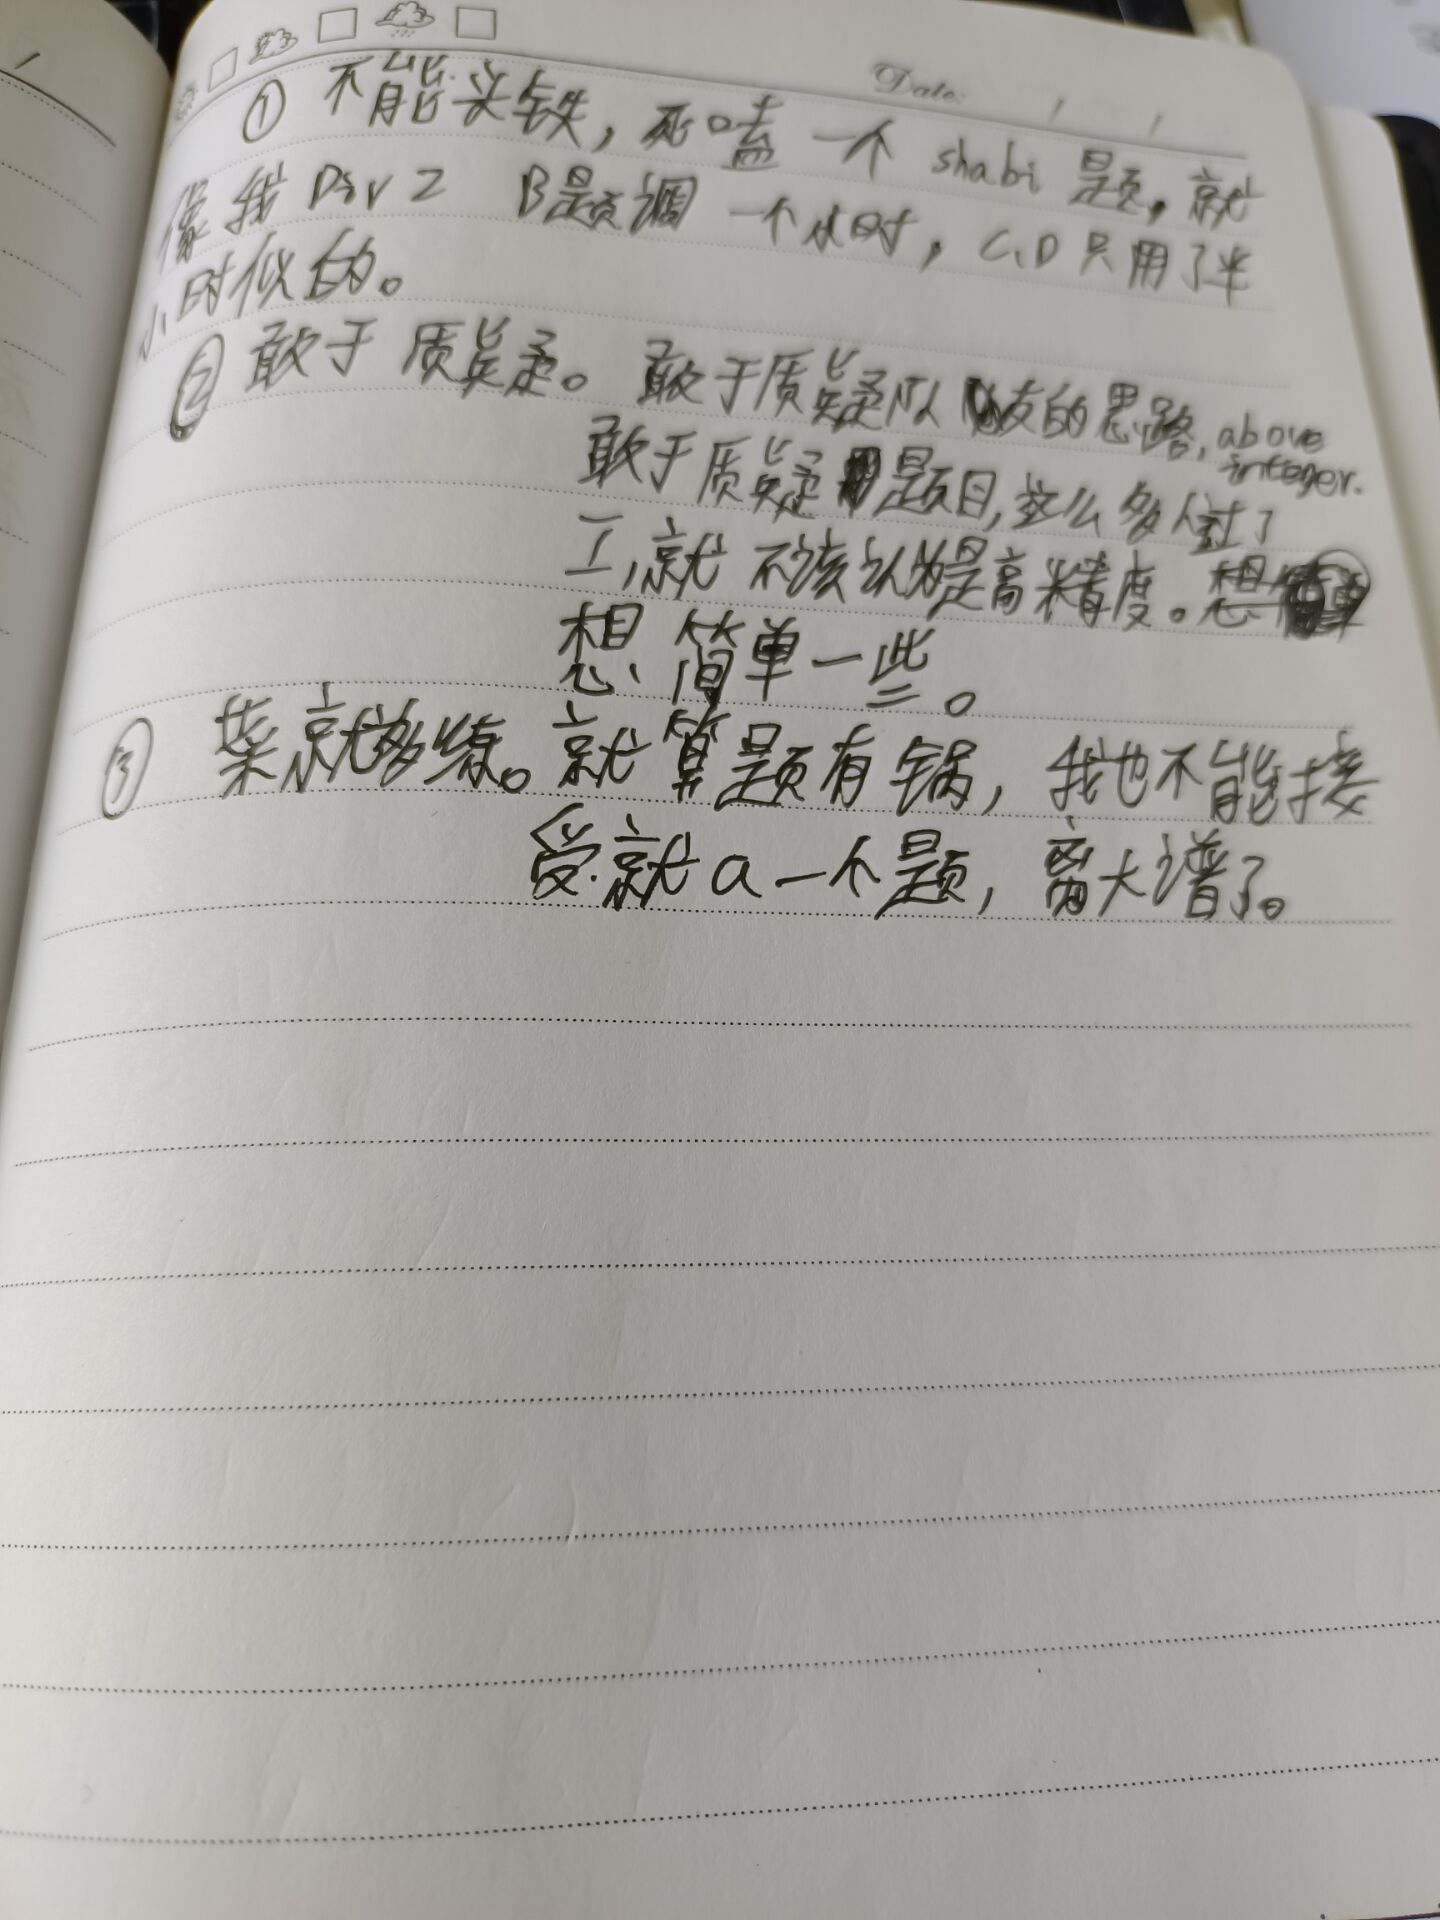 Date: / /
① 不能头铁，死嗑一个 shabi 题，就
像我 Div 2 B题调一个小时，C、D只用了半
小时似的。
② 敢于质疑。敢于质疑队友的思路，above
integer.
敢于质疑题目，这么多人过了
I，就不该认为是高精度。想简单
想简单一些。
③ 菜就多练。就算题有锅，我也不能接
受就a一个题，离大谱了。